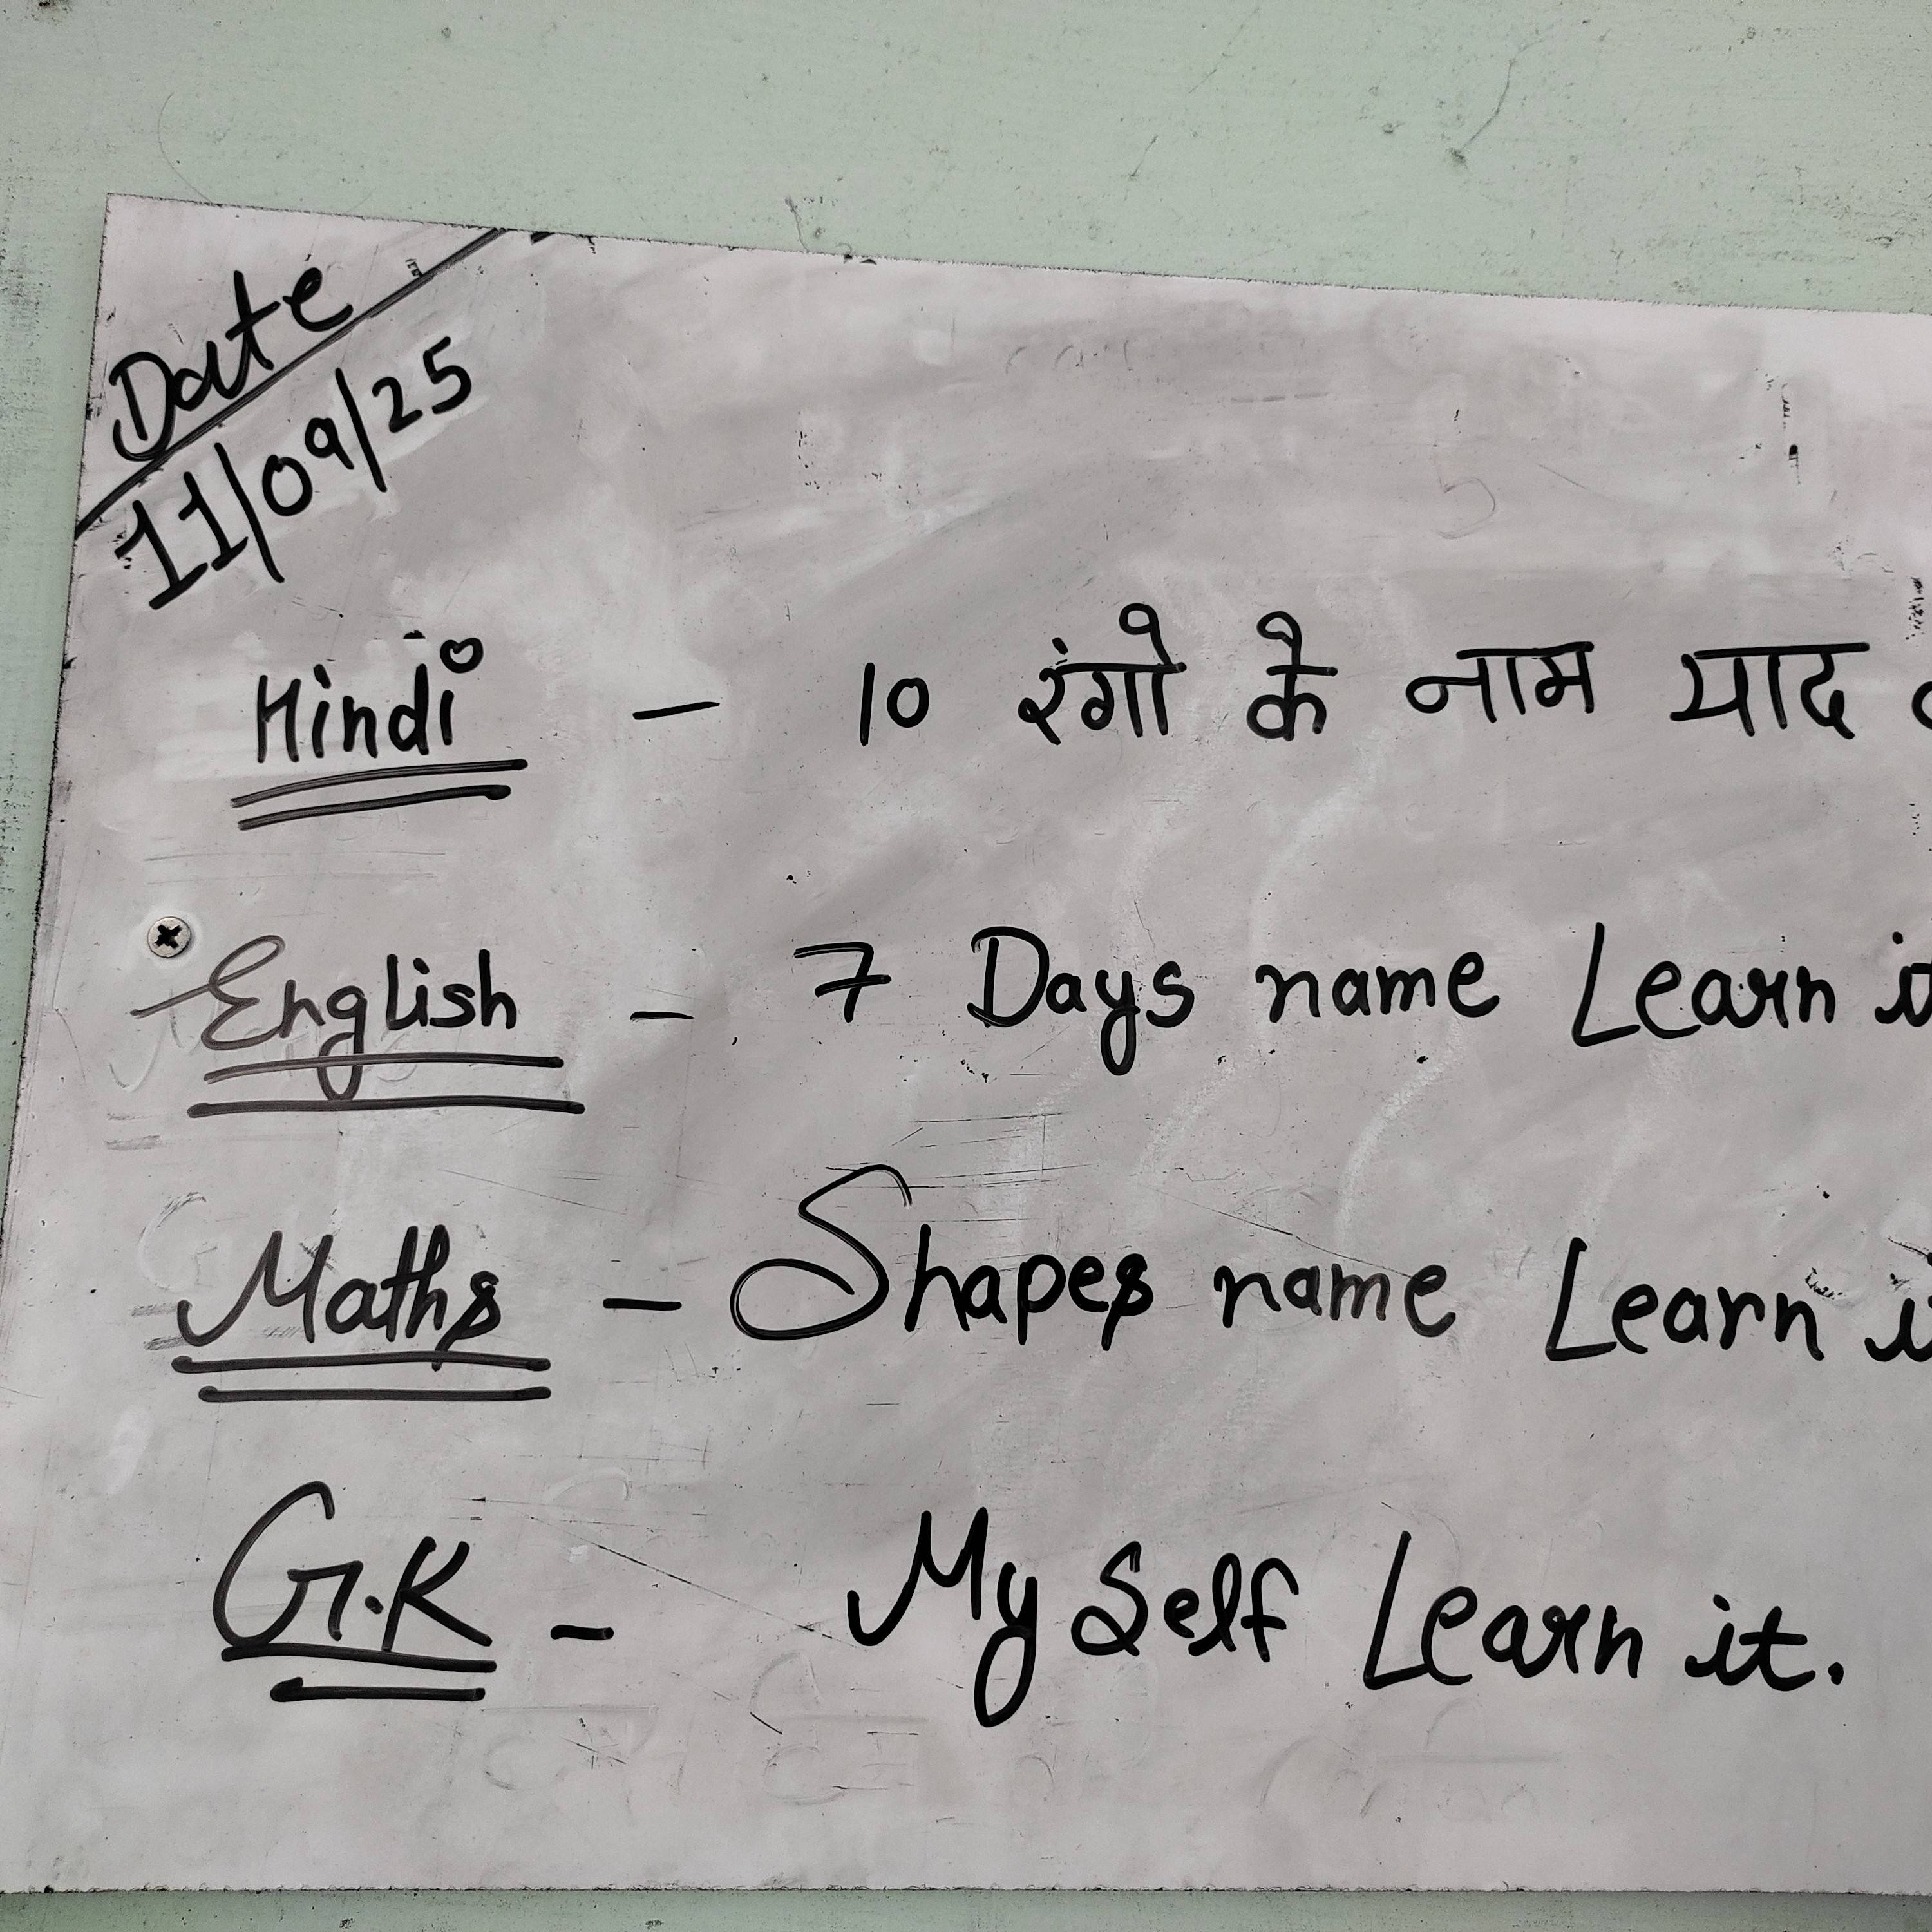 Date
11/09/25
Hindi - 10 रंगो के नाम याद
English - 7 Days name Learn it
Maths - Shapes name Learn
G.K - My Self Learn it.